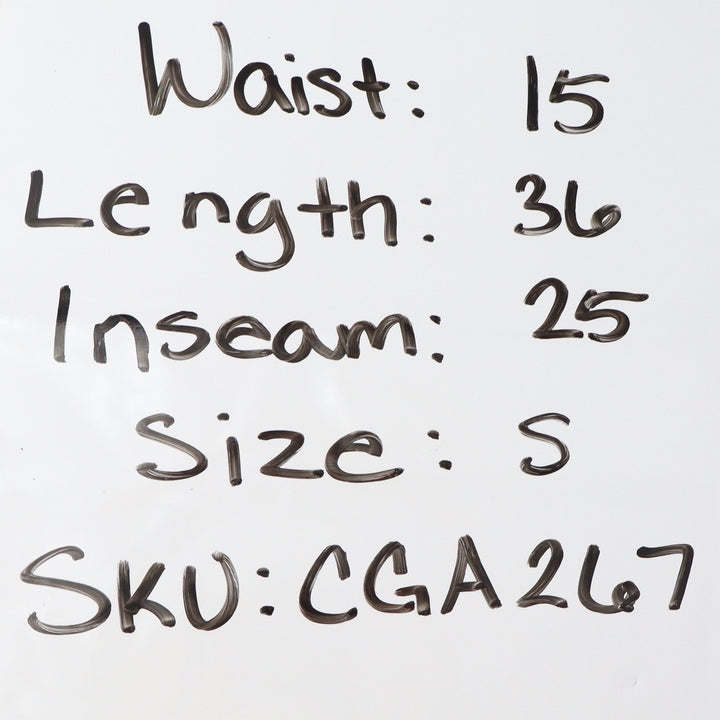 Waist: 15
Length: 36
Inseam: 25
Size: S
SKU: CGA267